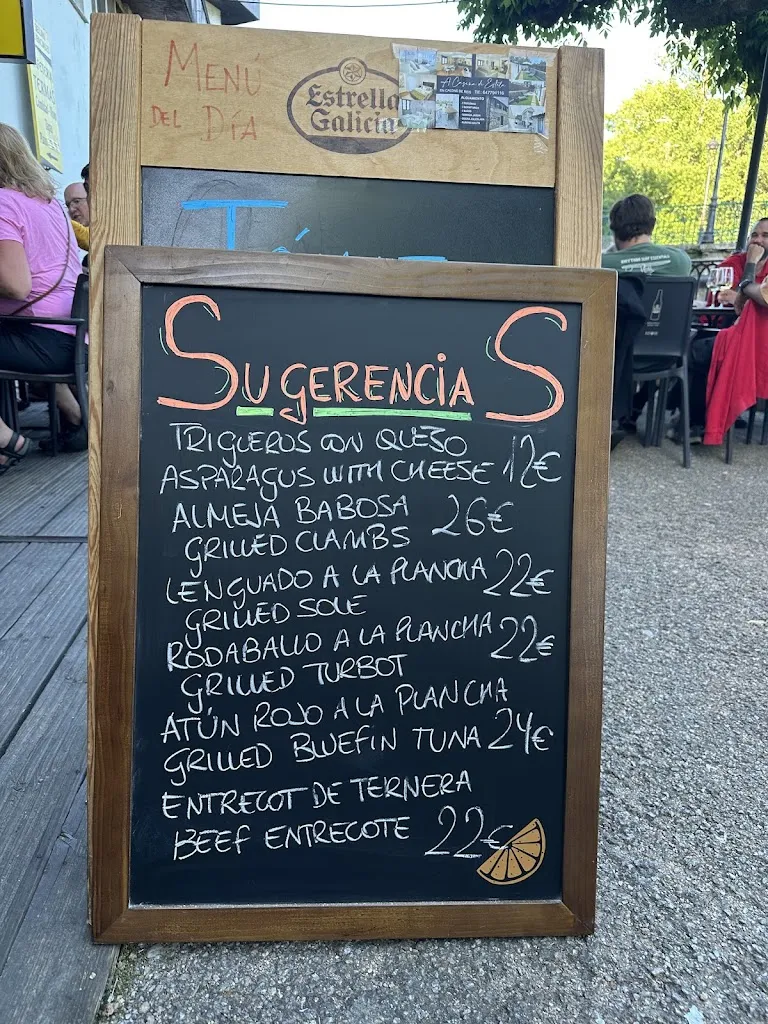 MENÚ
DEL DÍA
Estrella
Galicia
SUGERENCIAS
TRIGUEROS CON QUESO
ASPARAGUS WITH CHEESE 12€
ALMEJA BABOSA 26€
GRILLED CLAMBS
LENGUADO A LA PLANCHA 22€
GRILLED SOLE
RODABALLO A LA PLANCHA 22€
GRILLED TURBOT
ATÚN ROJO A LA PLANCHA
GRILLED BLUEFIN TUNA 24€
ENTRECOT DE TERNERA
BEEF ENTRECOTE 22€